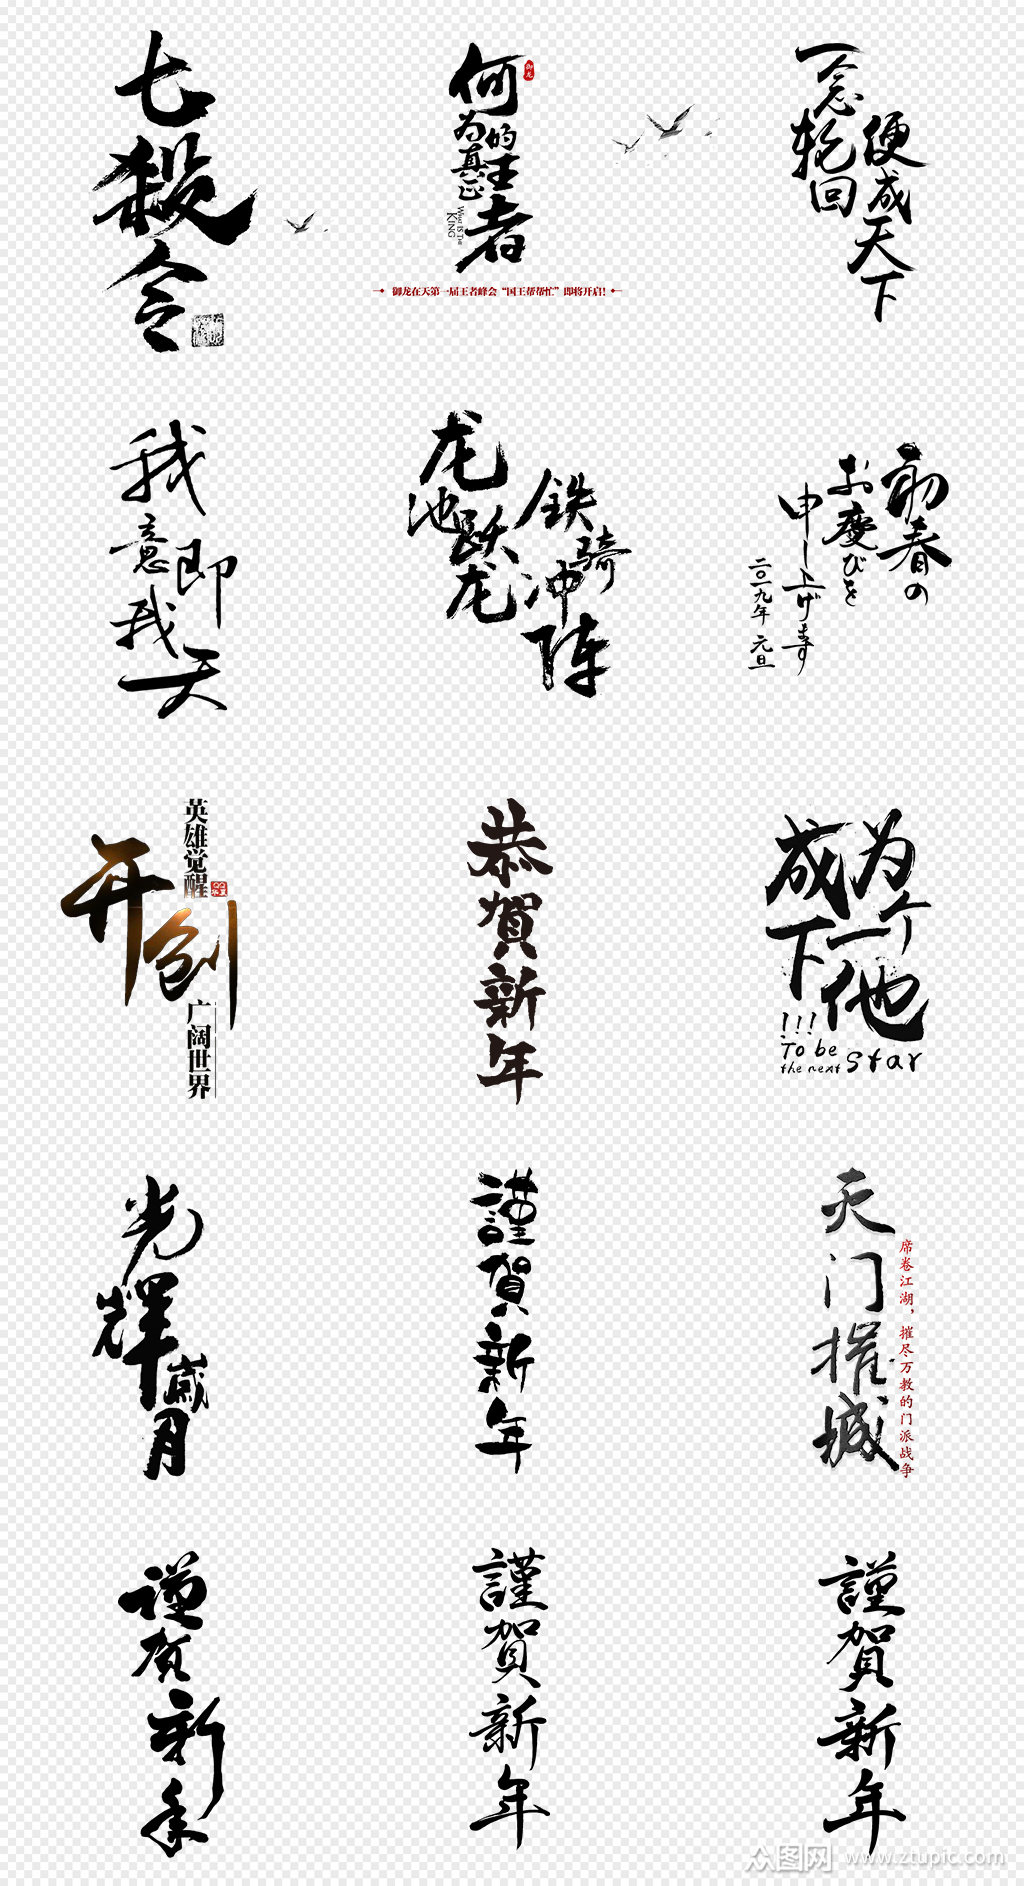 七殺令
何
为真正
的王
者
御龙
WHAT IS THE
KING
御龙在天第一届王者峰会“国王帮帮忙”即将开启!
一念轮回
便成天下
我
意即
我天
龙池跃龙
铁骑冲阵
初春の
お慶びを
申し上げます
二〇一九年 元旦
英雄觉醒
开创
广阔世界
恭賀新年
成为
下一个他
!!!
To be
the next
Star
光輝歲月
謹賀新年
灭门摧城
席卷江湖，摧尽万教的门派战争
謹賀新年
謹賀新年
謹賀新年
众图网 www.ztupic.com